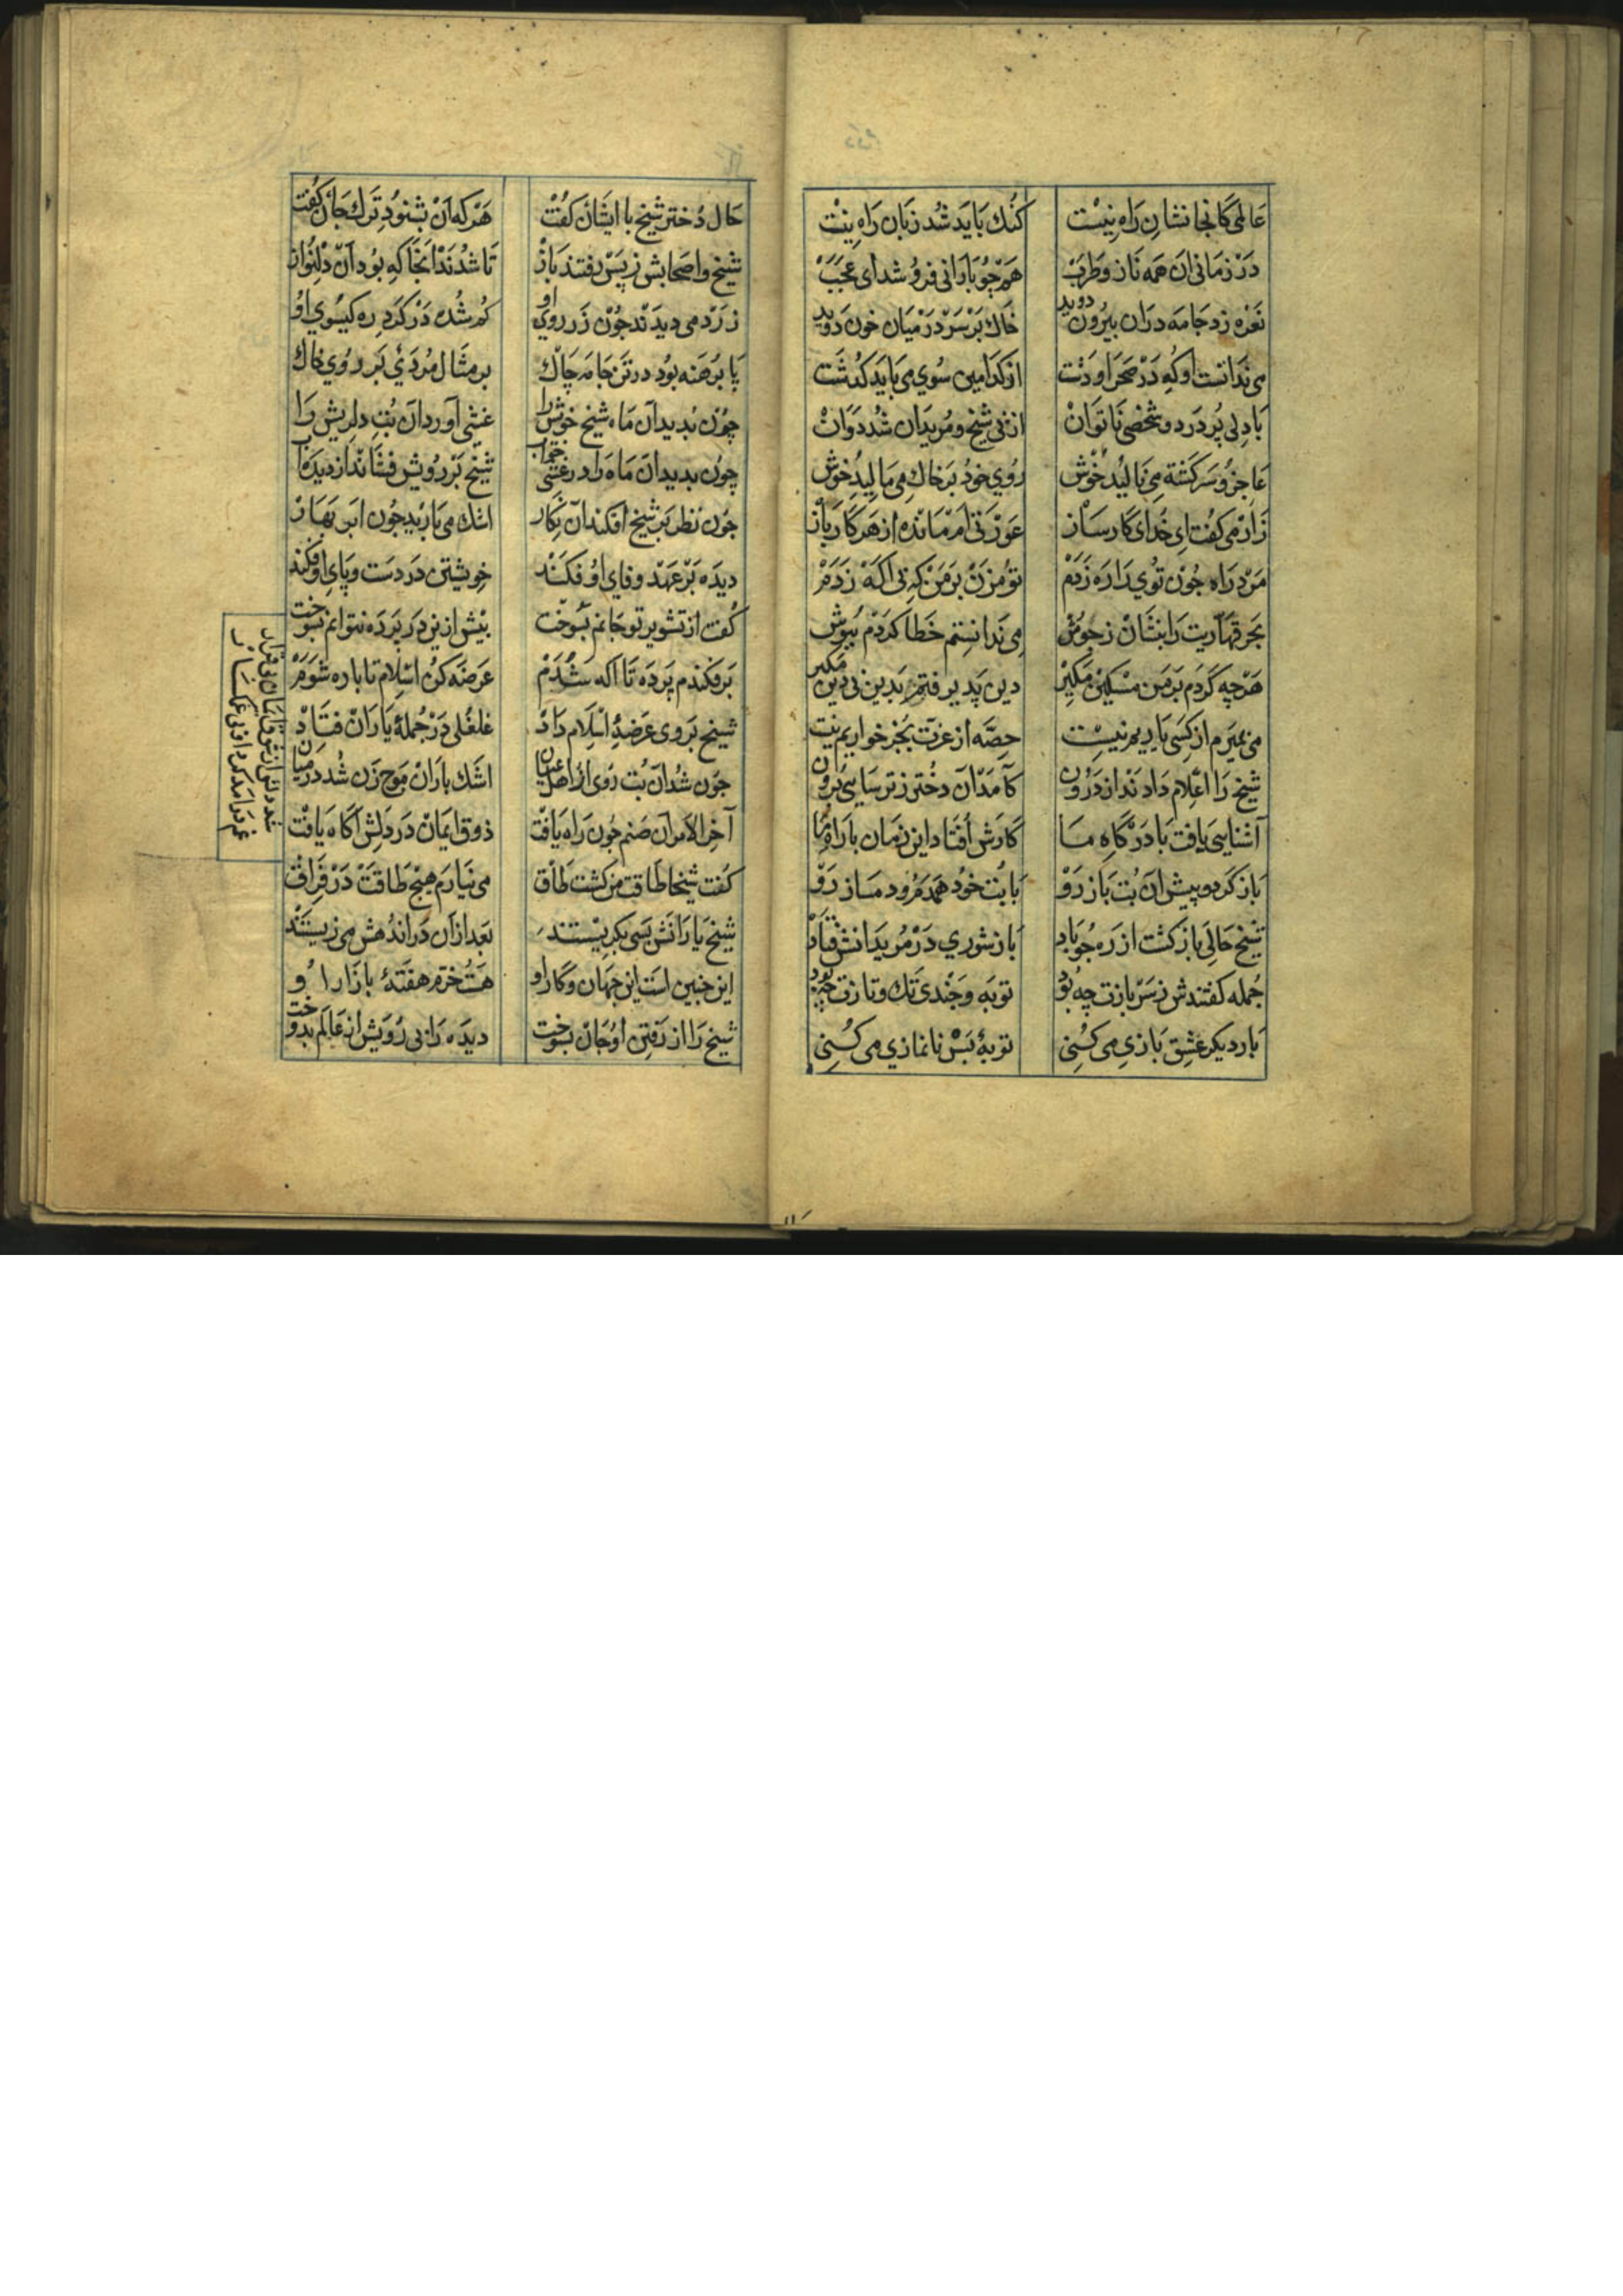 عالمی کانجا نشان راه نیست
کنک باید شد زبان راه نیست
در زمانی ان همه ناز و طرب
همچو بارانی فرو شد ای عجب
نعره زد جامه دران بیرون دوید
خاک بر سر در میان خون دوید
می ندانست او که در صحرا و دشت
از کدامین سوی می باید کدشت
با دلی پر درد و شخصی ناتوان
از پی شیخ و مریدان شد دوان
عاجز و سرکشته می نالید خوش
روی خود بر خاک می مالید خوش
زار می کفت ای خدای کارساز
عورتی ام مانده از هر کار باز
مرد راه چون توی را ره زدم
تو مزن بر من که بی اکه زدم
بحر قهاریت را بنشان ز جوش
می ندانستم خطا کردم بپوش
هرچه کردم بر من مسکین مکیر
دین پدیرفتم بدین بی دین مکیر
می بمیرم از کسی یاریم نیست
حصه از عزت بجز خواریم نیست
شیخ را اعلام دادند از درون
کامد ان دختر ز ترسایی برون
آشنایی یافت با درگاه ما
کارش افتاد این زمان با راه ما
باز کرد و پیش ان بت باز رو
با بت خود همدم و دمساز رو
شیخ حالی باز کشت از ره چو باد
باز شوری در مریدانش فتاد
جمله کفتندش ز سر بازت چه بود
توبه و چندی تک و تازت چه بود
بار دیکر عشق بازی می کنی
توبهٔ بس نانمازی می کنی
حال دختر شیخ با ایشان کفت
هر که ان بشنود ترک جان کفت
شیخ و اصحابش ز پس رفتند باز
تا شدند آنجا که بود آن دلنواز
زرد می دیدند چون زر روی او
کم شده در کرد ره کیسوی او
پا برهنه بود در تن جامه چاک
بر مثال مردی بر روی خاک
چون بدید آن ماه شیخ خوش را
غشی آورد ان بت دلریش را
چون بدید ان ماه را در غشی خواب
شیخ بر رویش فشاند از دیده آب
چون نظر بر شیخ افکند ان نکار
اشک می بارید چون ابر بهار
دیده بر عهد و فای او فکند
خویشتن در دست و پای او فکند
کفت از تشویر تو جانم بسوخت
بیش ازین در پرده نتوانم بسوخت
برفکندم پرده تا اکه شدم
عرضه کن اسلام تا با ره شوم
شیخ بر وی عرضهٔ اسلام داد
غلغلی در جملهٔ یاران فتاد
چون شد آن بت روی از اهل عیان
اشک باران موج زن شد در میان
آخر الامر ان صنم چون راه یافت
ذوق ایمان در دلش آکاه یافت
کفت شیخا طاقت من کشت طاق
می نیارم هیچ طاقت در فراق
شیخ یارانش بسی بکریستند
بعد از ان در اندهش می زیستند
این چنین است این جهان و کار او
هست خرم هفتهٔ بازار او
شیخ را از رفتن او جان بسوخت
دیده را بی رویش از عالم بدوخت
شد دلش از ذوق ایمان بی قرار
غم درآمد کرد او بی غمکسار